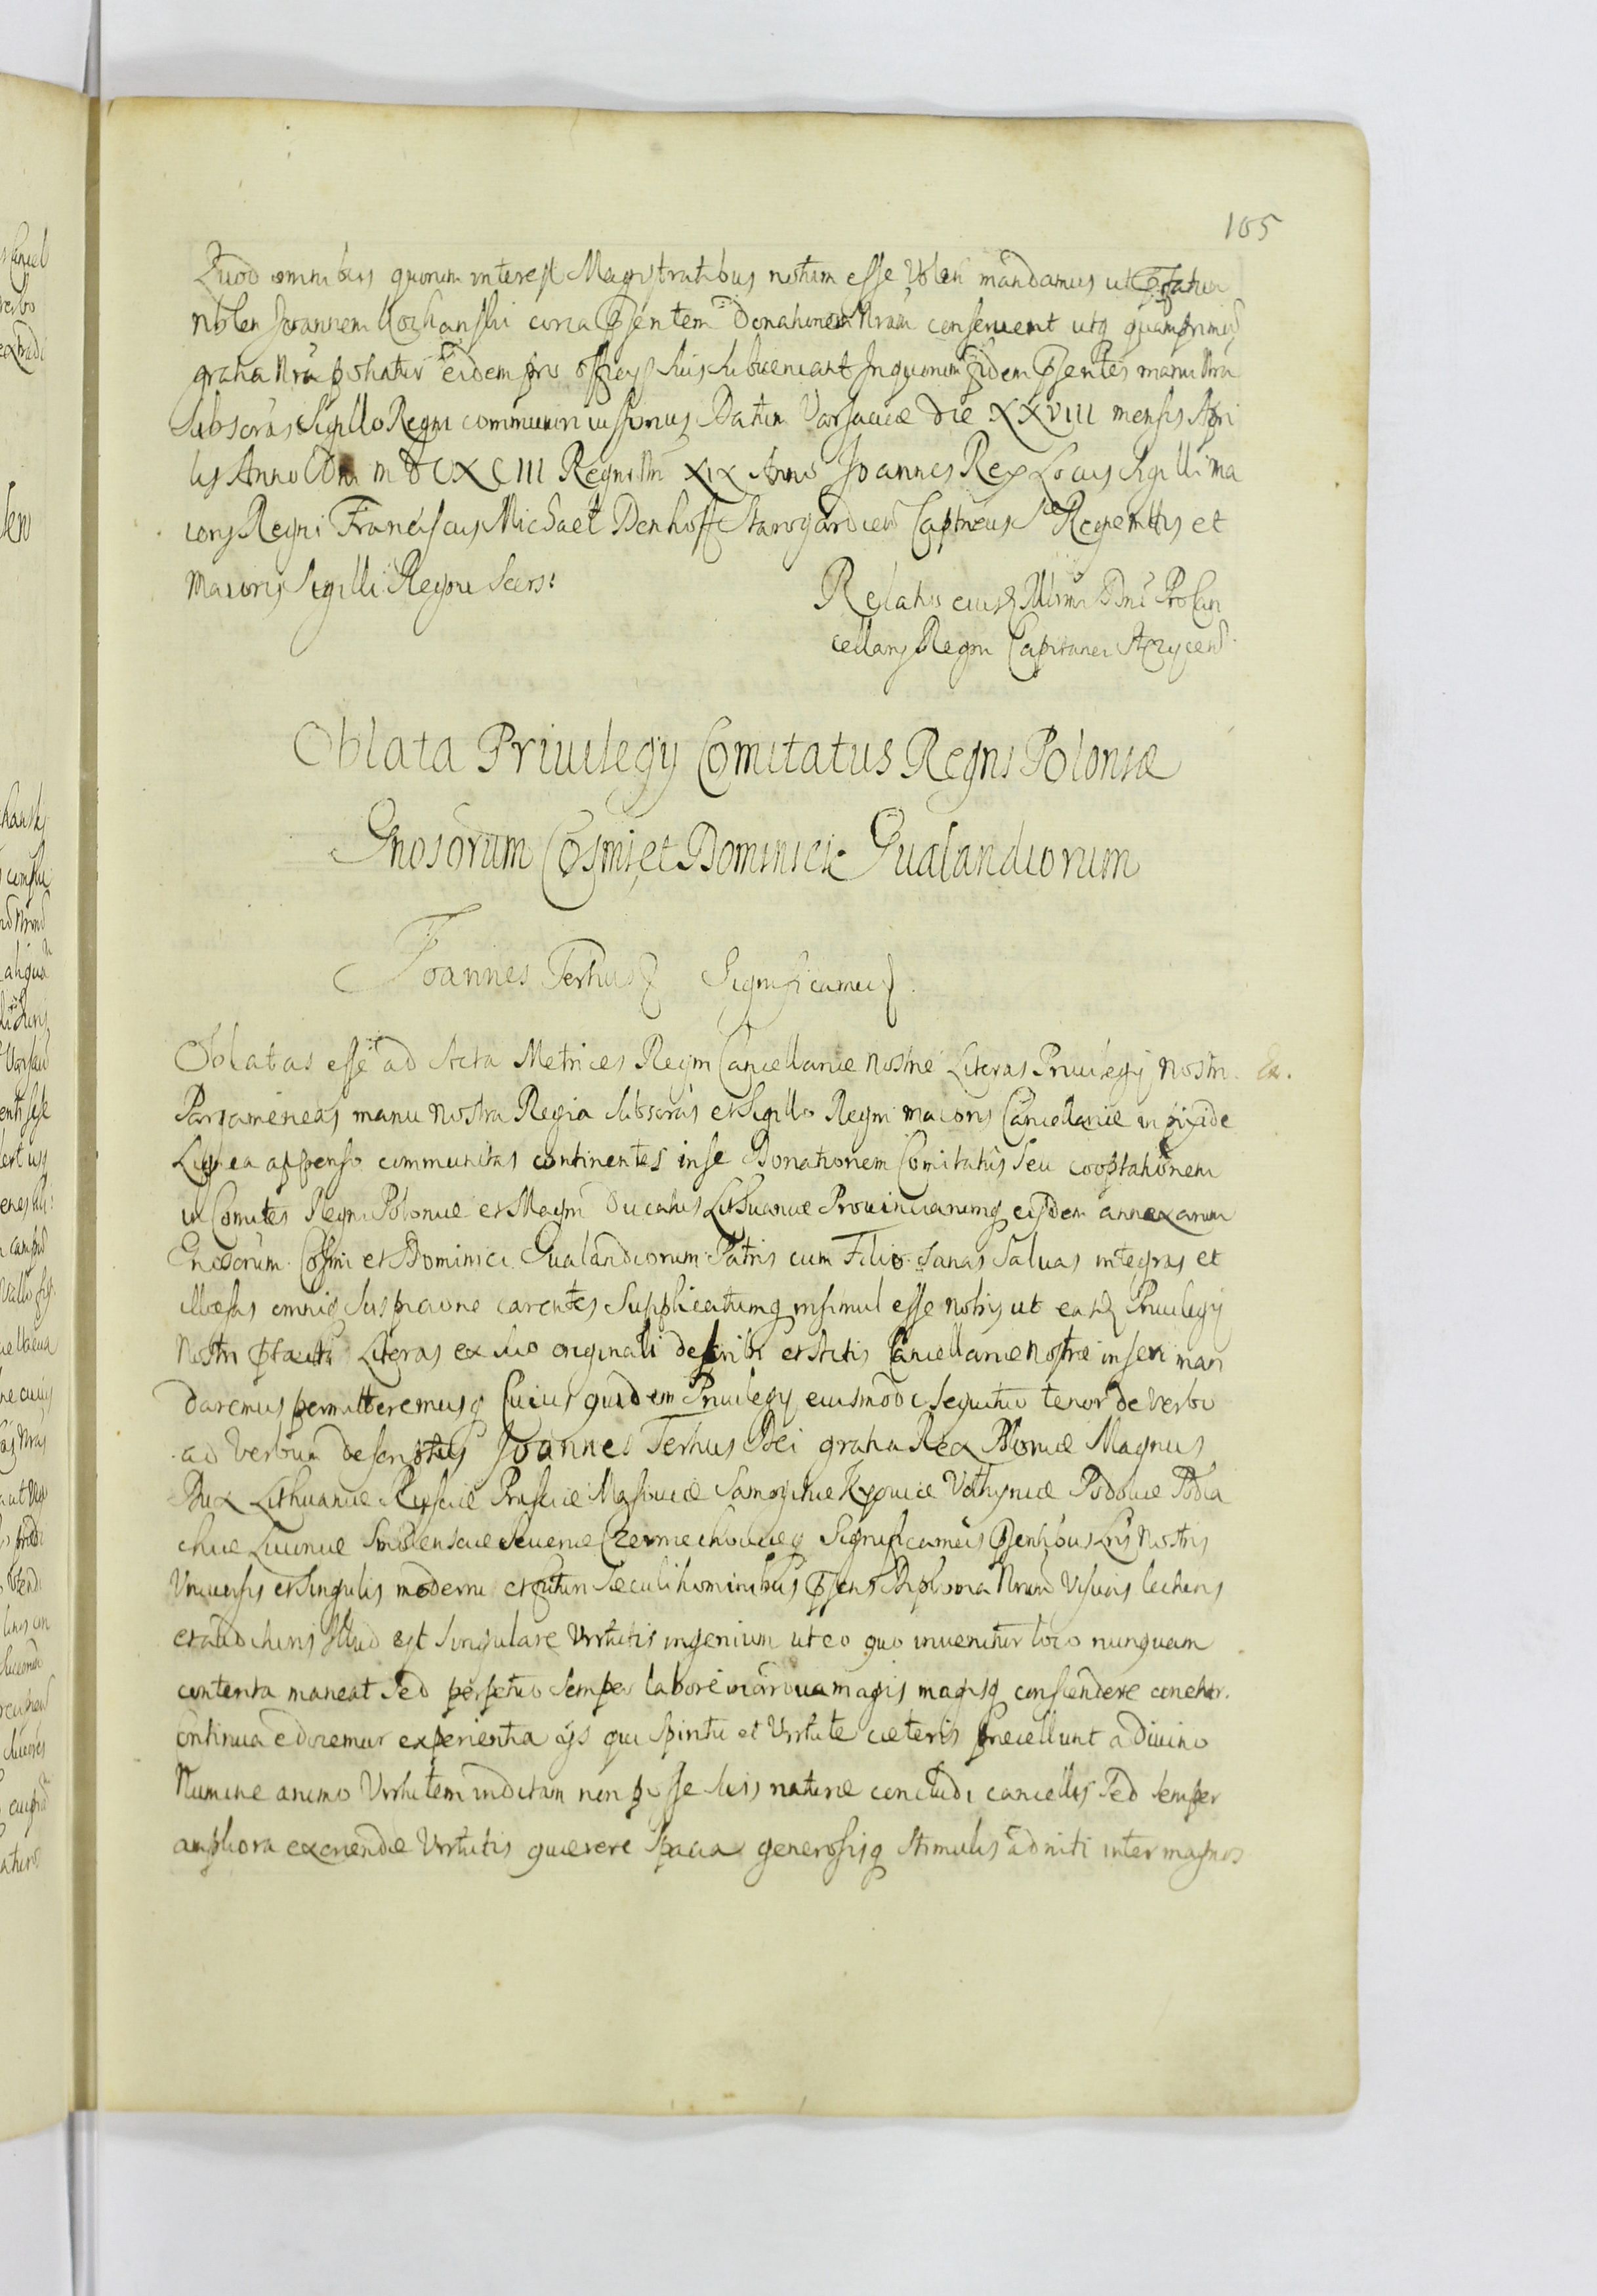 105
Quod omnibus quorum interest Magistratibus notum esse Volen mandamus ut Pfatum
Nblen Joannem Kochanski circa Psentem Donationem Nram conseruent utq quamprimum
gratia Nra potiatur eidem pro officijs suis subueniant In quorum fidem Psentes manu Nra
Subscras Sigillo Regni communiri iussimus Datum Varsauiæ die XXVIII mensis Apri
lis Anno Dni MDCXCIII Regni Nri XIX Anno Joannes Rex Locus Sigilli ma
ioris Regni Franciscus Michael Denhoff Starogardien Captneus Sæ Regiæ Mttis et
Maioris Sigilli Regni Secrs:
Relatio eiusd Illmi Dni ProCan
cellarij Regni Capitanei Strycen
Oblata Priuilegij Comitatus Regni Poloniæ
Gnosorum Cosmi et Dominici Gualandiorum
Joannes Tertius Significamus
Oblatas esse ad Acta Metrices Regni Cancellariæ Nostræ Literas Priuilegij Nostri Ex.
Pargameneas manu Nostra Regia Subscras et Sigillo Regni maioris Cancellariæ in pixide
Lignea appenso communitas continentes in se Donationem Comitatus Seu cooptationem
in Comites Regni Poloniæ et Magni Ducatus Lithuaniæ Prouinciarumq eisdem annexarum
Gnosorum Cosmi et Dominici Gualandiorum Patris cum Filio Sanas Saluas integras et
illæsas omniq Suspicione carentes Supplicatumq insimul esse nobis ut easd Priuilegij
Nostri Pfati Literas ex suo originali describi et Actis Cancellariæ Nostræ inseri man
daremus permitteremusq Cuius quidem Priuilegij eiusmodi sequitur tenor de Verbo
ad Verbum descriptus Joannes Tertius Dei gratia Rex Poloniæ Magnus
Dux Lithuaniæ Russiæ Prussiæ Masouiæ Samogitiæ Kyouiæ Volhyniæ Podoliæ Podla
chiæ Liuoniæ Smolensciæ Seueriæ Czerniechouiæq Significamus Psentibus Lris Nostris
Vniuersis et Singulis moderni et futuri Sæculi hominibus Psens Diploma Nrum Visuris lecturis
et audituris Illud est Singulare Virtutis ingenium ut eo quo inuenitur loco nunquam
contenta maneat Sed perpetuo Semper labore in ardua magis magisq conscendere conetur
Continua edocemur experientia ijs qui Spiritu et Virtute cæteris præcellunt a Diuino
Numine animo Virtutem inditam non posse suis naturæ concludi cancellis Sed Semper
ampliora exerendæ Virtutis quærere Spacia generosisq Stimulis adniti inter magnos